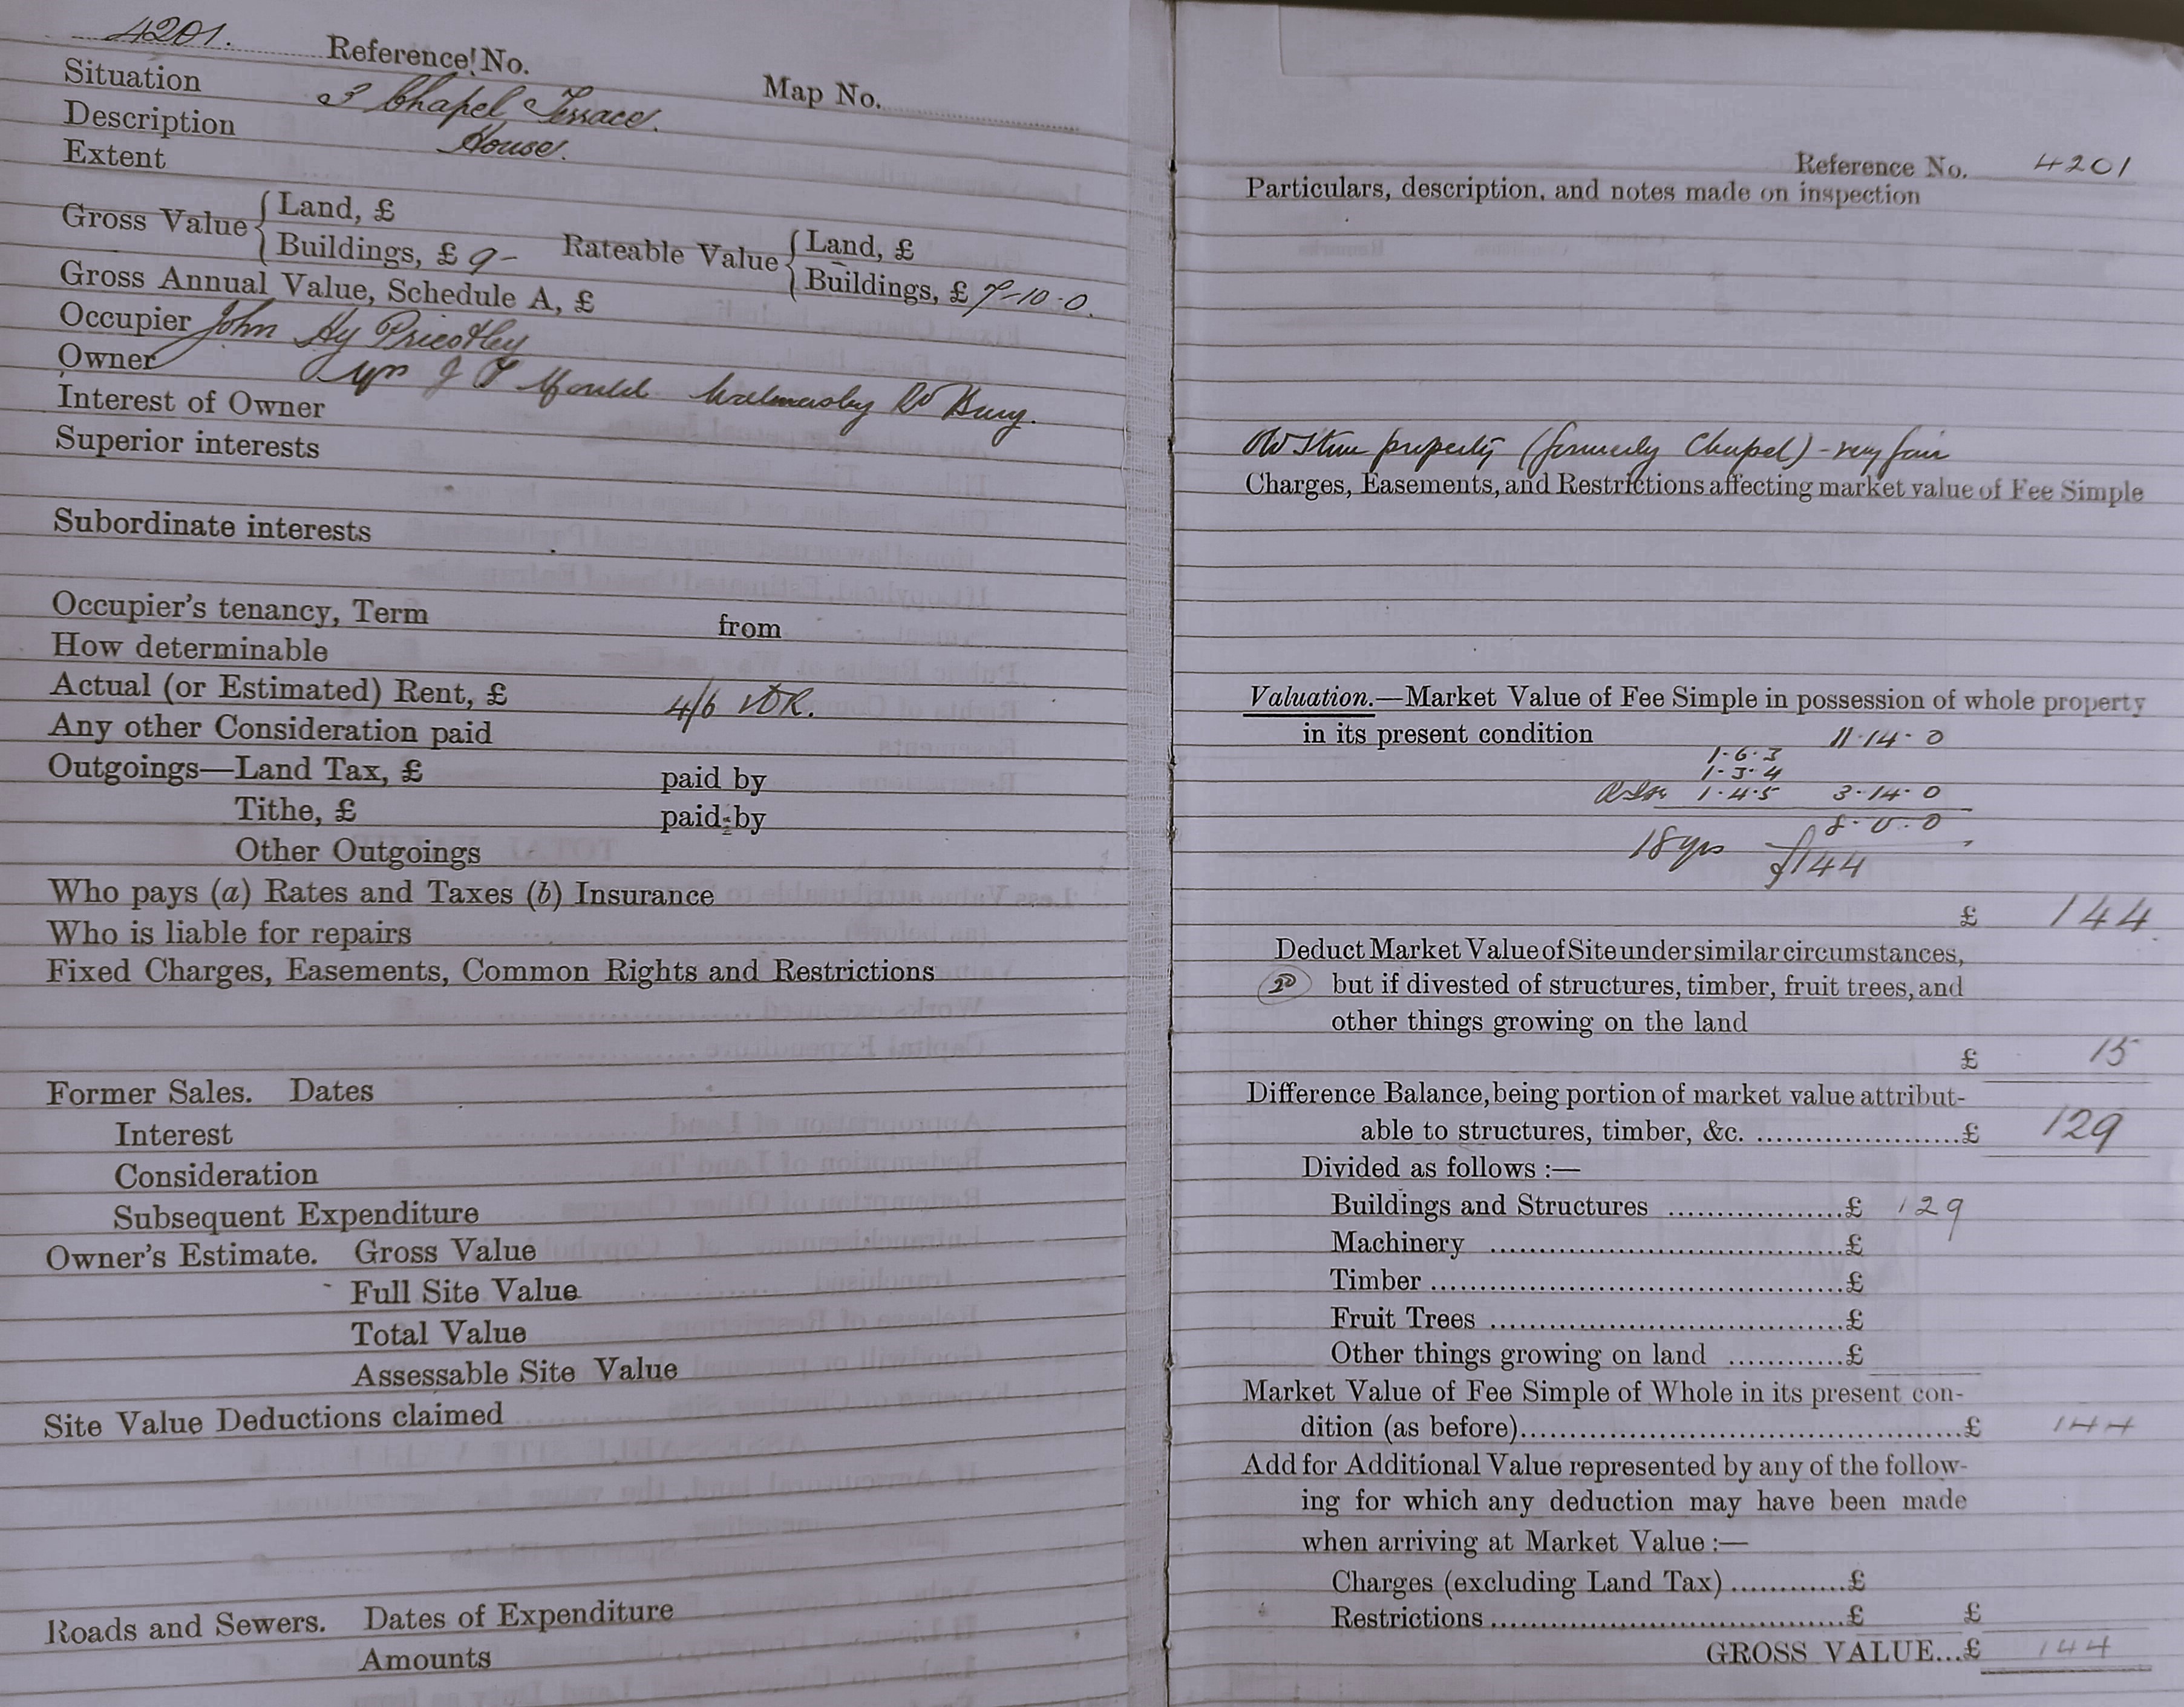 4201. Reference No.
Map No.
Situation 3 Chapel Terrace.
Description House.
Extent
Gross Value { Land, £
Buildings, £ 9- Rateable Value { Land, £
Buildings, £ 7-10-0.
Gross Annual Value, Schedule A, £
Occupier John Hy Priestley
Owner J T Mould Walmersley Rd Bury.
Interest of Owner
Superior interests
Subordinate interests
Occupier's tenancy, Term from
How determinable
Actual (or Estimated) Rent, £ 4/6
Any other Consideration paid
Outgoings—Land Tax, £ paid by
Tithe, £ paid by
Other Outgoings
Who pays (a) Rates and Taxes (b) Insurance
Who is liable for repairs
Fixed Charges, Easements, Common Rights and Restrictions
Former Sales. Dates
Interest
Consideration
Subsequent Expenditure
Owner's Estimate. Gross Value
Full Site Value
Total Value
Assessable Site Value
Site Value Deductions claimed
Roads and Sewers. Dates of Expenditure
Amounts
Reference No. 4201
Particulars, description, and notes made on inspection
Old Stone property (formerly Chapel) - very fair
Charges, Easements, and Restrictions affecting market value of Fee Simple
Valuation.—Market Value of Fee Simple in possession of whole property
in its present condition 11-14-0
1-6-3
1-3-4
1-4-5 3-14-0
8-0-0
18 yrs £144
£ 144
Deduct Market Value of Site under similar circumstances,
20 but if divested of structures, timber, fruit trees, and
other things growing on the land
£ 15
Difference Balance, being portion of market value attribut-
able to structures, timber, &c. ....................£ 129
Divided as follows :—
Buildings and Structures ..................£ 129
Machinery ....................................£
Timber ..........................................£
Fruit Trees ....................................£
Other things growing on land ............£
Market Value of Fee Simple of Whole in its present con-
dition (as before)..............................................£ 144
Add for Additional Value represented by any of the follow-
ing for which any deduction may have been made
when arriving at Market Value :—
Charges (excluding Land Tax) ............£
Restrictions....................................£ £
GROSS VALUE...£ 144